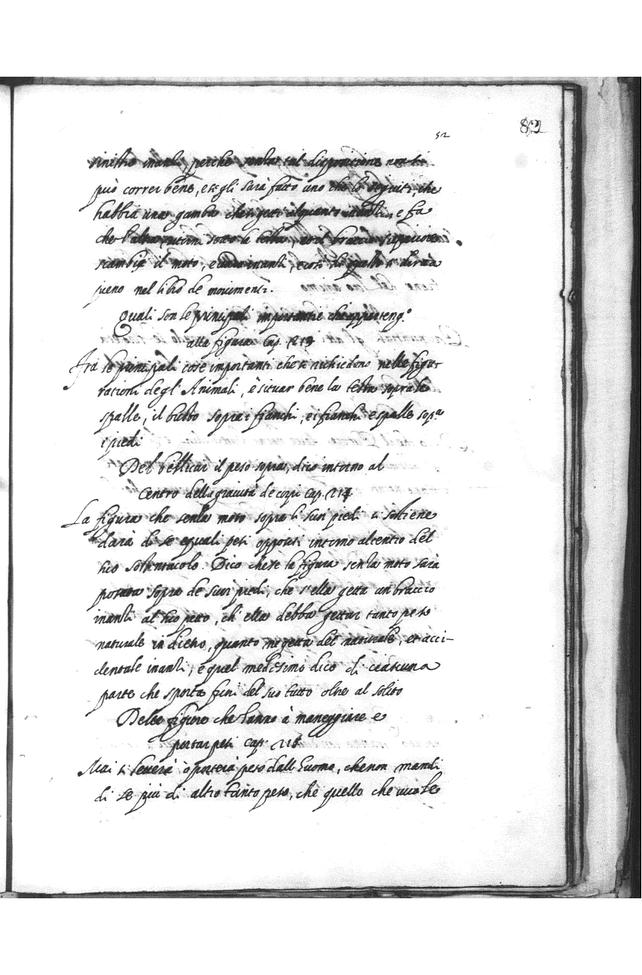 52
82
sinistro inanti, perche senza tal dispositione non si
può correr bene, et egli sarà fatto uno che lo seguiti, che
habbia una gamba che si getti alquanto inanti, e fa
che l'altra ritorni sotto la testa, et il braccio
scambij il moto, e vada inanti, e così di questo si dirrà
pieno nel libro de movimenti.
Quali son le principali importantie che apparteng.º
alla figura Cap. 213
Fra le principali cose importanti che si richiedono nelle figu-
rationi degl' Animali, è situar bene la testa sopra le
spalle, il busto sopra i fianchi, e i fianchi e spalle sop.ª
i piedi
Del bellicar il peso sopra, dico intorno al
Centro della gravità de corpi Cap. 214
La figura che senza moto sopra li suoi piedi si sostiene
darà di se equali pesi oppositi intorno al centro del
suo sostentacolo. Dico che se la figura senza moto sarà
posata sopra de suoi piedi, che s'ella getta un braccio
inanti al suo petto, ch' ella debba gettar tanto peso
naturale in dietro, quanto ne getta del naturale, et acci-
dentale inanti, e quel medesimo dico di ciascuna
parte che sporta fuori del suo tutto oltre al solito
Delle figure che hanno à maneggiare e
portar pesi Cap. 215
Mai si leverà o porterà peso dall'huomo, che non mandi
di se più di altro tanto peso, che quello che vuole